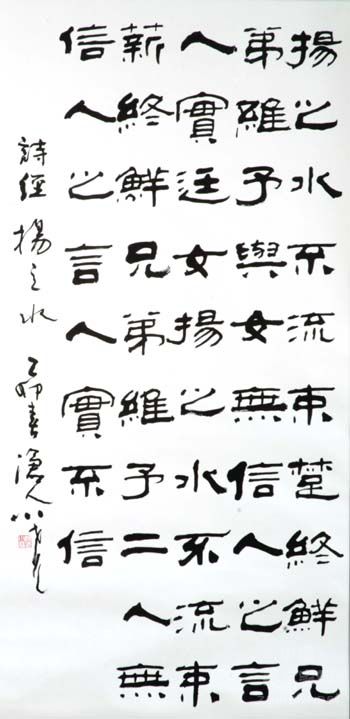 揚之水不流束楚終鮮兄
弟維予與女無信人之言
人實迋女揚之水不流束
薪終鮮兄弟維予二人無
信人之言人實不信
詩經 揚之水 卯春漁人